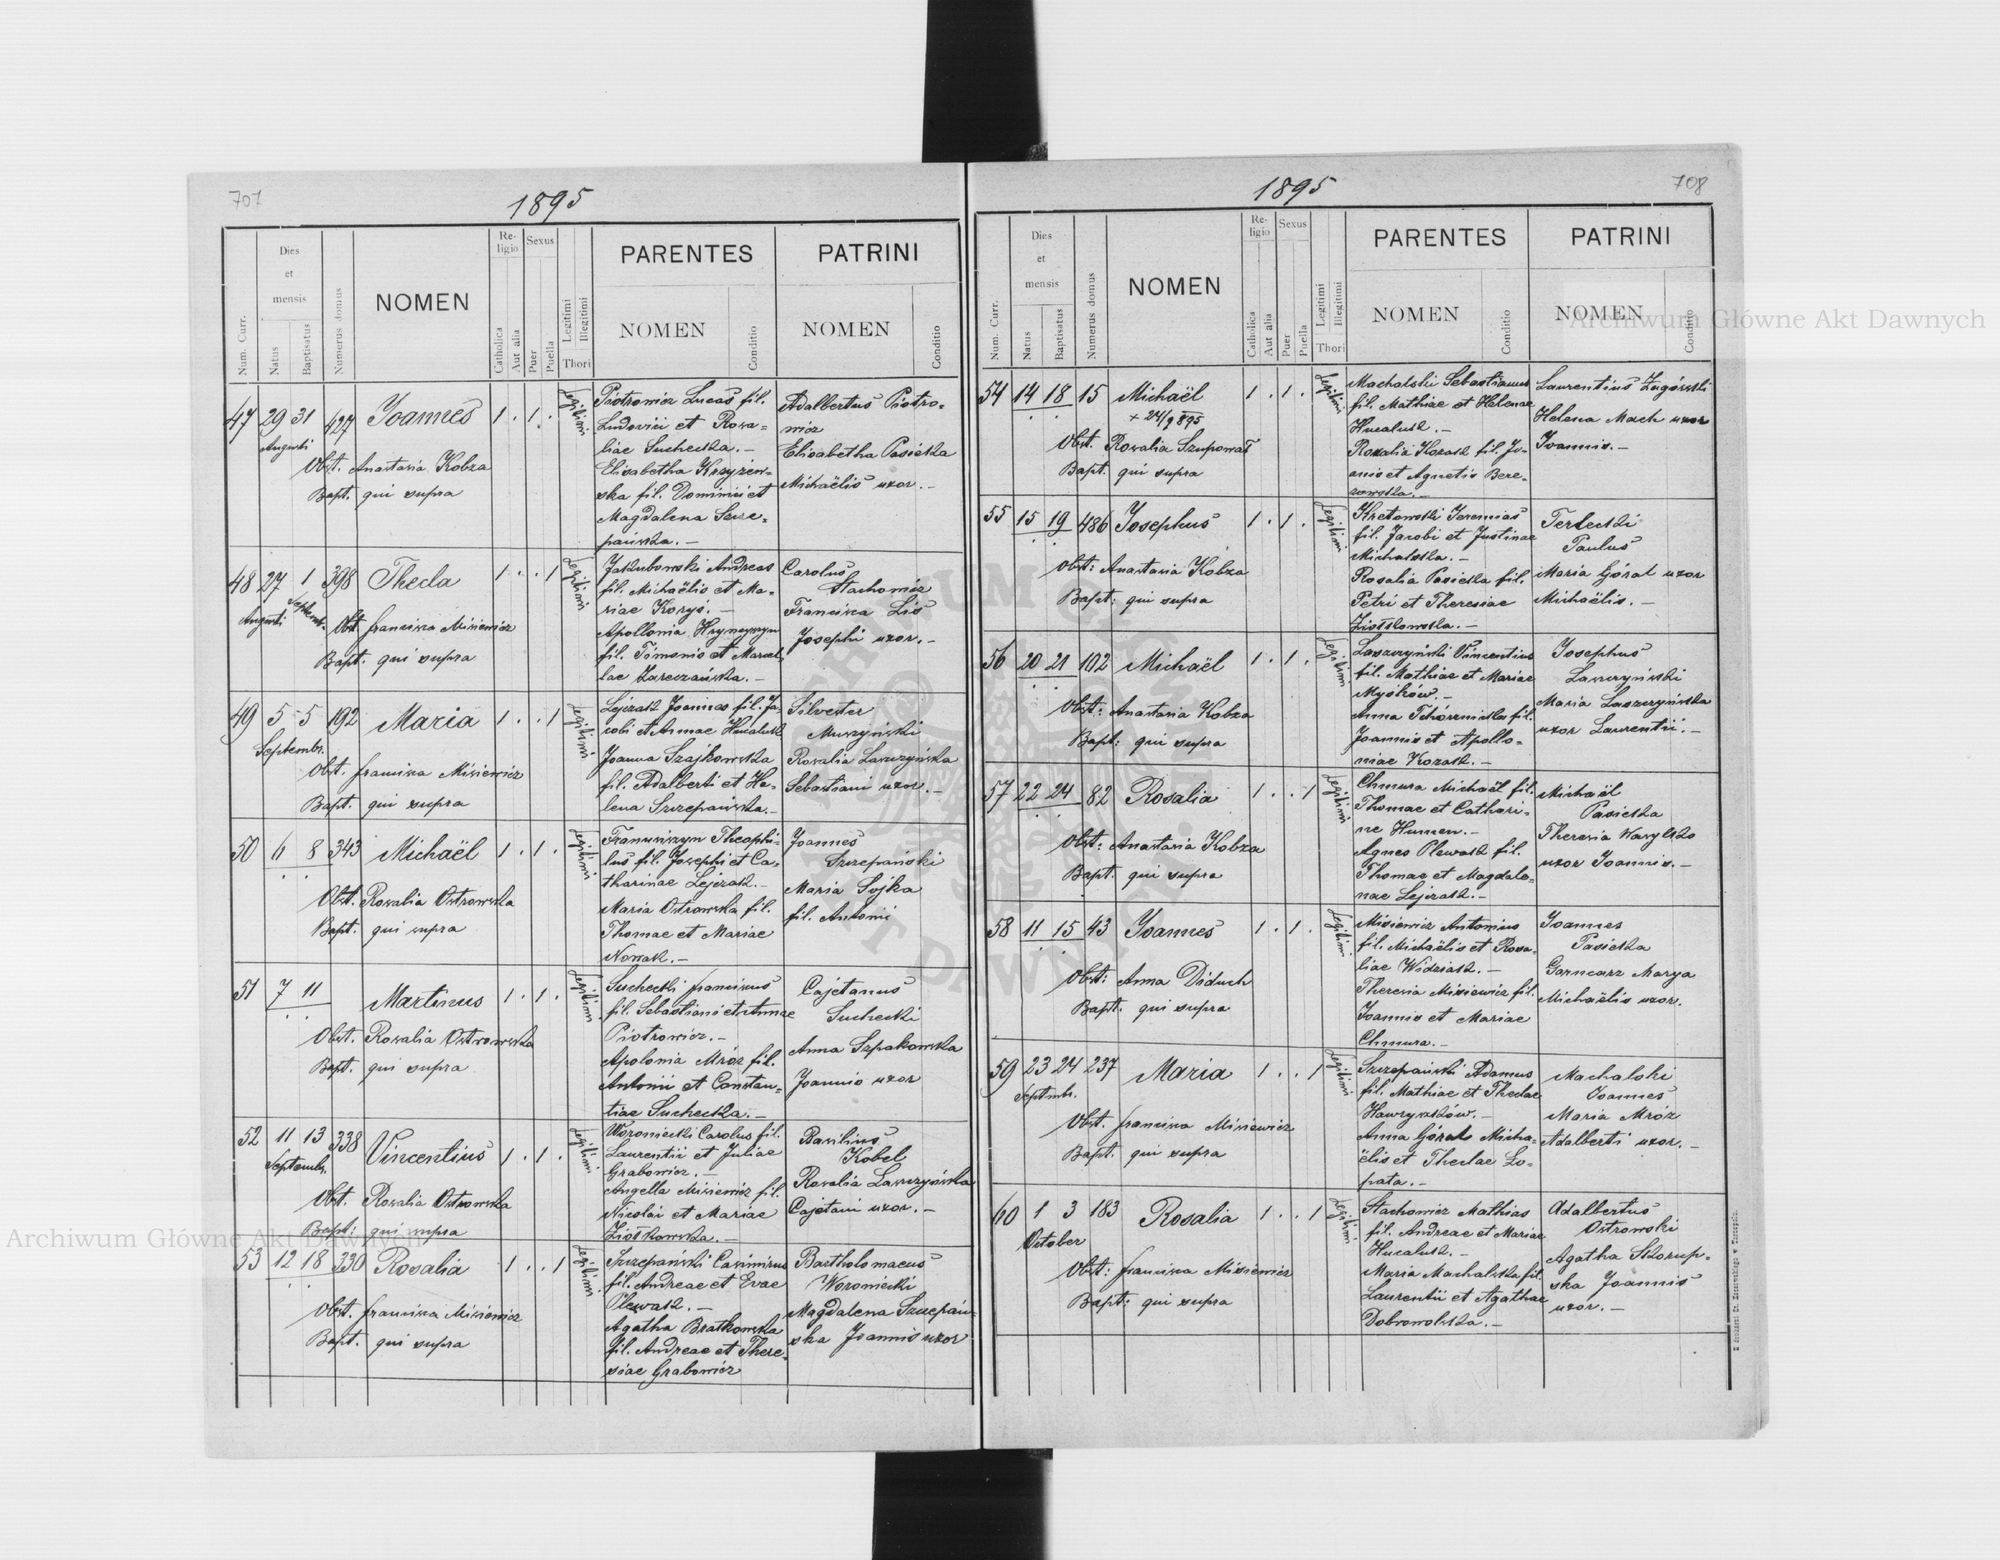 707
1895
Num. Curr.
Dies et mensis
Natus
Baptisatus
Numerus domus
NOMEN
Religio
Catholica
Aut alia
Sexus
Puer
Puella
Legitimi
Illegitimi
Thori
PARENTES
NOMEN
Conditio
PATRINI
NOMEN
Conditio
47 29 31 427 Joannes 1 . 1 . Legitimi
Augusti
Obst. Anastasia Kobza
Bapt. qui supra
Piotrowicz Lucas fil.
Ludovici et Rosa-
liae Suchecka. –
Elisabetha Krzyżew-
ska fil. Dominici et
Magdalena Szcze-
pańska. –
Adalbertus Piotro-
wicz
Elisabetha Pasieka
Michaëlis uxor. –
48 27 1 398 Thecla 1 . . 1 Legitimi
Augusti Septemb.
Obst. Francisca Misiewicz
Bapt. qui supra
Jakubowski Andreas
fil. Michaëlis et Ma-
riae Koryś. –
Apollonia Hryncyszyn
fil. Simonis et Marcel-
lae Zareczańska. –
Carolus
Stachowicz
Francisca Lis
Josephi uxor. –
49 5 5 192 Maria 1 . . 1 Legitimi
Septembr.
Obst. Francisca Misiewicz
Bapt. qui supra
Lejczak Joannes fil. Ja-
cobi et Annae Hucaluk
Joanna Szajkowska
fil. Adalberti et He-
lena Szczepańska. –
Silvester
Muszyński
Rosalia Laszczyńska
Sebastiani uxor. –
50 6 8 343 Michaël 1 . 1 . Legitimi
Obst. Rosalia Ostrowska
Bapt. qui supra
Theophi-
lus fil. Josephi et Ca-
tharinae Lejczak. –
Maria Ostrowska fil.
Thomae et Mariae
Nowak. –
Joannes
Szczepański
Maria Sojka
fil. Antonii
51 7 11 Martinus 1 . 1 . Legitimi
Obst. Rosalia Ostrowska
Bapt. qui supra
Suchecki Franciscus
fil. Sebastiani et Annae
Piotrowicz. –
Apolonia Mróz fil.
Antonii et Constan-
tiae Suchecka. –
Cajetanus
Suchecki
Anna Szpakowska
Joannis uxor
52 11 13 338 Vincentius 1 . 1 . Legitimi
Septembr.
Obst. Rosalia Ostrowska
Bapt: qui supra
Woroniecki Carolus fil.
Laurentii et Juliae
Grabowicz. –
Angella Misiewicz fil.
Nicolai et Mariae
Ziółkowska. –
Basilius
Kobel
Rosalia Laszczyńska
Cajetani uxor. –
53 12 18 330 Rosalia 1 . . 1 Legitimi
Obst. Francisca Misiewicz
Bapt. qui supra
Szczepański Casimirus
fil. Andreae et Evae
Plewak. –
Agatha Bratkowska
fil. Andreae et There-
siae Grabowicz
Bartholomaeus
Woroniecki
Magdalena Szczepań-
ska Joannis uxor
708
1895
Num. Curr.
Dies et mensis
Natus
Baptisatus
Numerus domus
NOMEN
Religio
Catholica
Aut alia
Sexus
Puer
Puella
Legitimi
Illegitimi
Thori
PARENTES
NOMEN
Conditio
PATRINI
NOMEN
Conditio
54 14 18 15 Michaël 1 . 1 . Legitimi
+ 24/9 895
Obst. Rosalia Szuponat
Bapt. qui supra
Machalski Sebastianus
fil. Mathiae et Helenae
Hucaluk. –
Rosalia Kozak fil. Jo-
anis et Agnetis Bere-
zowska. –
Laurentius Zagórski
Helena Mach uxor
Joannis. –
55 15 19 486 Josephus 1 . 1 . Legitimi
Obst: Anastasia Kobza
Bapt: qui supra
Kretowski Jeremias
fil. Jacobi et Justinae
Michalska. –
Rosalia Pasieka fil.
Petri et Theresiae
Ziółkowska. –
Terlecki
Paulus
Maria Góral uxor
Michaëlis. –
56 20 21 102 Michaël 1 . 1 . Legitimi
Obst: Anastasia Kobza
Bapt: qui supra
Laszczyński Vincentius
fil. Mathiae et Mariae
Myśków. –
Anna Tchórznicka fil.
Joannis et Apollo-
niae Kozak. –
Josephus
Laszczyński
Maria Laszczyńska
uxor Laurentii. –
57 22 24 82 Rosalia 1 . . 1 Legitimi
Obst: Anastasia Kobza
Bapt. qui supra
Chmura Michaël fil.
Thomae et Cathari-
ne Humen. –
Agnes Plewak fil.
Thomae et Magdale-
nae Lejczak. –
Michaël
Pasieka
Theresia Wasylko
uxor Joannis. –
58 11 15 43 Joannes 1 . 1 . Legitimi
Obst: Anna Diduch
Bapt. qui supra
Misiewicz Antonius
fil. Michaëlis et Rosa-
liae Widziak. –
Theresia Misiewicz fil.
Joannis et Mariae
Chmura. –
Joannes
Pasieka
Garncarz Marya
Michaëlis uxor.
59 23 24 237 Maria 1 . . 1 Legitimi
Septmbr.
Obst. Francisca Misiewicz
Bapt. qui supra
Szczepański Adamus
fil. Mathiae et Theclae
Hawryszków. –
Anna Góral Micha-
ëlis et Theclae Lo-
pata. –
Machalski
Joannes
Maria Mróz
Adalberti uxor. –
60 1 3 183 Rosalia 1 . . 1 Legitimi
October
Obst: Francisca Misiewicz
Bapt: qui supra
Stachowicz Mathias
fil. Andreae et Mariae
Hucaluk. –
Maria Machalska fil.
Laurentii et Agathae
Dobrowolska. –
Adalbertus
Ostrowski
Agatha Skorup-
ska Joannis
uxor. –
Archiwum Główne Akt Dawnych
Archiwum Główne Akt Dawnych
ARCHIWUM GŁÓWNE AKT DAWNYCH